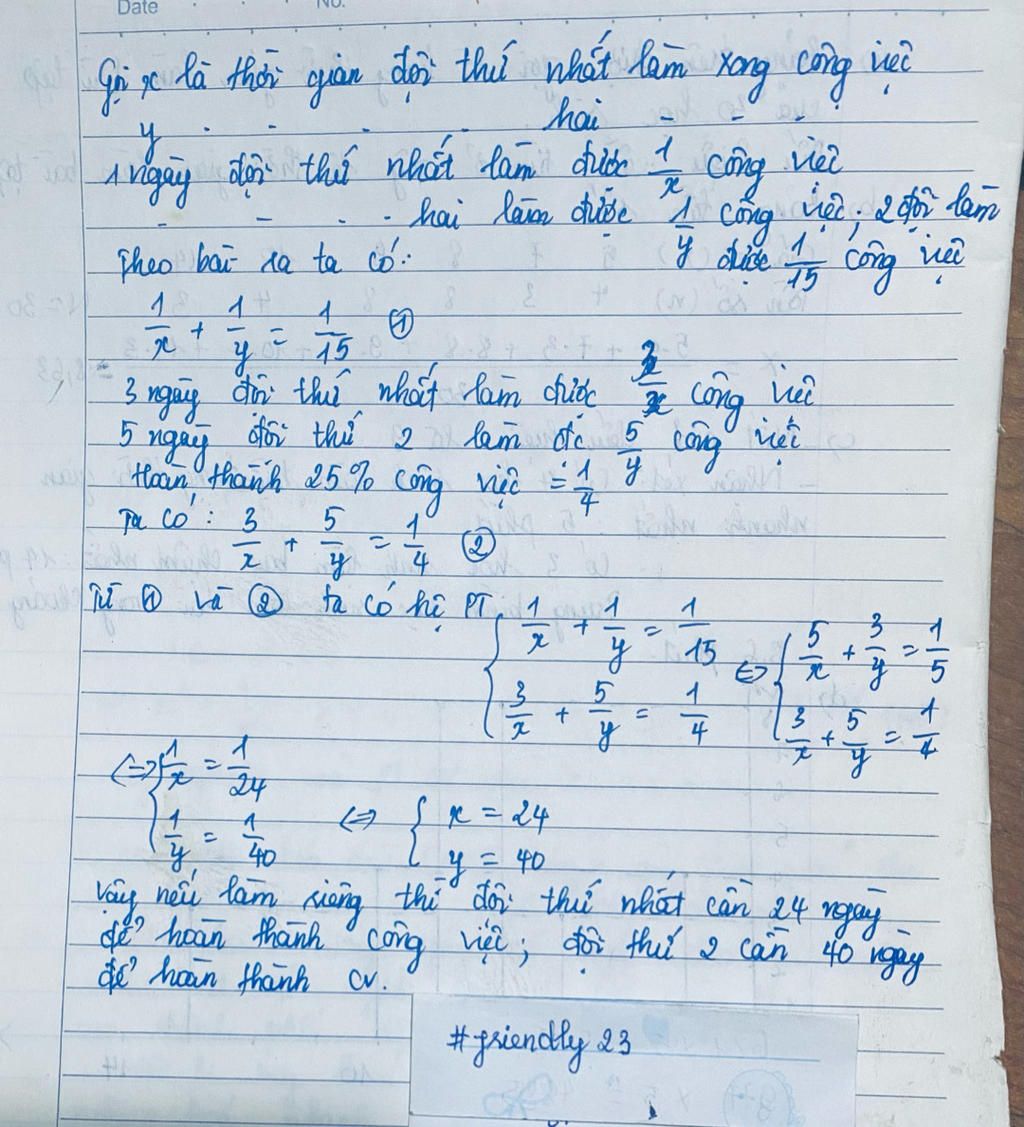 Date No.
Gọi x là thời gian đội thứ nhất làm xong công việc
y - - - - hai - - -
1 ngày đội thứ nhất làm được 1/x công việc
- - - - hai làm được 1/y công việc; 2 đội làm
được 1/15 công việc
Theo bài ra ta có:
1/x + 1/y = 1/15 ①
3 ngày đội thứ nhất làm được 3/x công việc
5 ngày đội thứ 2 làm đc 5/y công việc
Hoàn thành 25% công việc = 1/4
Ta có: 3/x + 5/y = 1/4 ②
Từ ① và ② ta có hệ PT
{ 1/x + 1/y = 1/15 <=> { 5/x + 3/y = 1/5
{ 3/x + 5/y = 1/4 { 3/x + 5/y = 1/4
<=> { 1/x = 1/24
{ 1/y = 1/40 <=> { x = 24
{ y = 40
Vậy nếu làm riêng thì đội thứ nhất cần 24 ngày
để hoàn thành công việc; đội thứ 2 cần 40 ngày
để hoàn thành cv.
#friendly 23